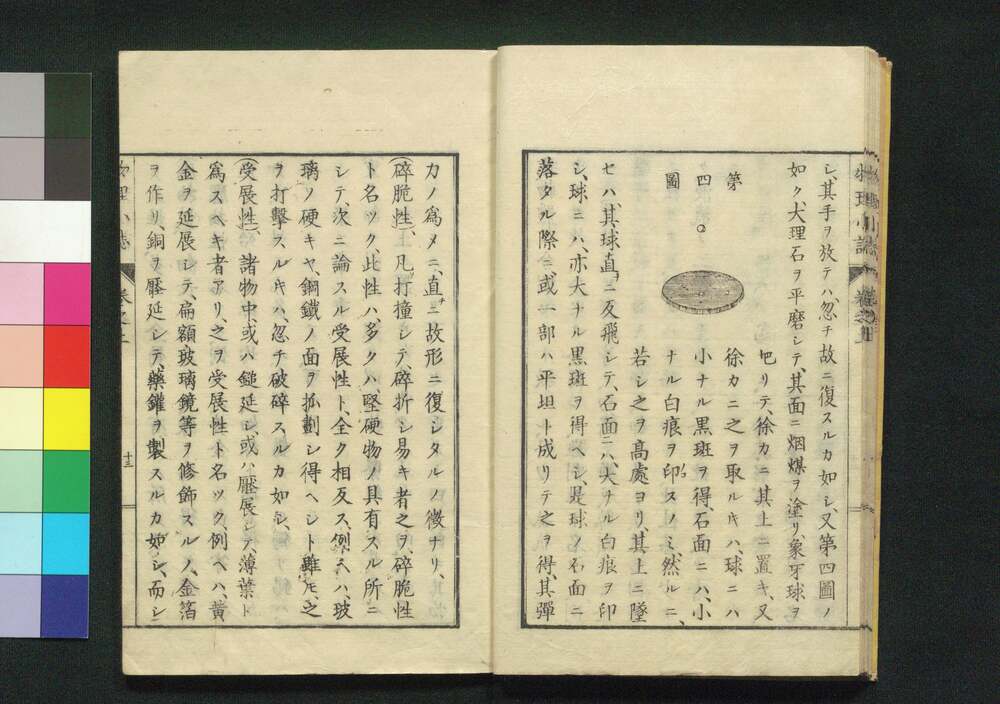 シ、其手ヲ放テハ、忽チ故ニ復スルカ如シ、又第四圖ノ
如ク、大理石ヲ平磨シテ、其面ニ烟煤ヲ塗リ、象牙球ヲ
第四圖
把リテ、徐カニ其上ニ置キ、又
徐カニ之ヲ取ル𪜈ハ、球ニハ
小ナル黒斑ヲ得、石面ニハ、小
ナル白痕ヲ印スノミ、然ルニ、
若シ之ヲ髙處ヨリ、其上ニ墜
セハ、其球直ニ反飛シテ、石面ニハ、大ナル白痕ヲ印
シ、球ニハ、亦大ナル黒斑ヲ得ヘシ、是球ノ石面ニ
落タル際ニ、或一部ハ平坦ト成リテ之ヲ得、其彈
力ノ爲メニ、直ニ故形ニ復シタルノ徴ナリ、
(碎脆性)凡打撞シテ、碎折シ易キ者之ヲ、碎脆性
ト名ツク、此性ハ、多クハ堅硬物ノ具有スル所ニ
シテ、次ニ論スル受展性ト、全ク相反ス、例ヘハ、玻
璃ノ硬キヤ、鋼鐵ノ面ヲ抓劃シ得ヘシト雖モ、之
ヲ打擊スル𪜈ハ、忽チ破碎スルカ如シ、
(受展性)諸物中或ハ鎚延シ、或ハ壓展シテ、薄葉ト
爲スヘキ者アリ、之ヲ受展性ト名ツク、例ヘハ、黄
金ヲ延展シテ、扁額玻璃鏡等ヲ修飾スルノ、金箔
ヲ作リ、銅ヲ壓延シテ、藥鑵ヲ製スルカ如シ、而シ
十三